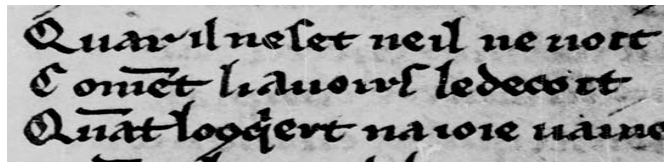 Quar il ne set ne il ne uoit
Comēt li auoirs le decoit
Qūat lo q̇ert na ioie uaine